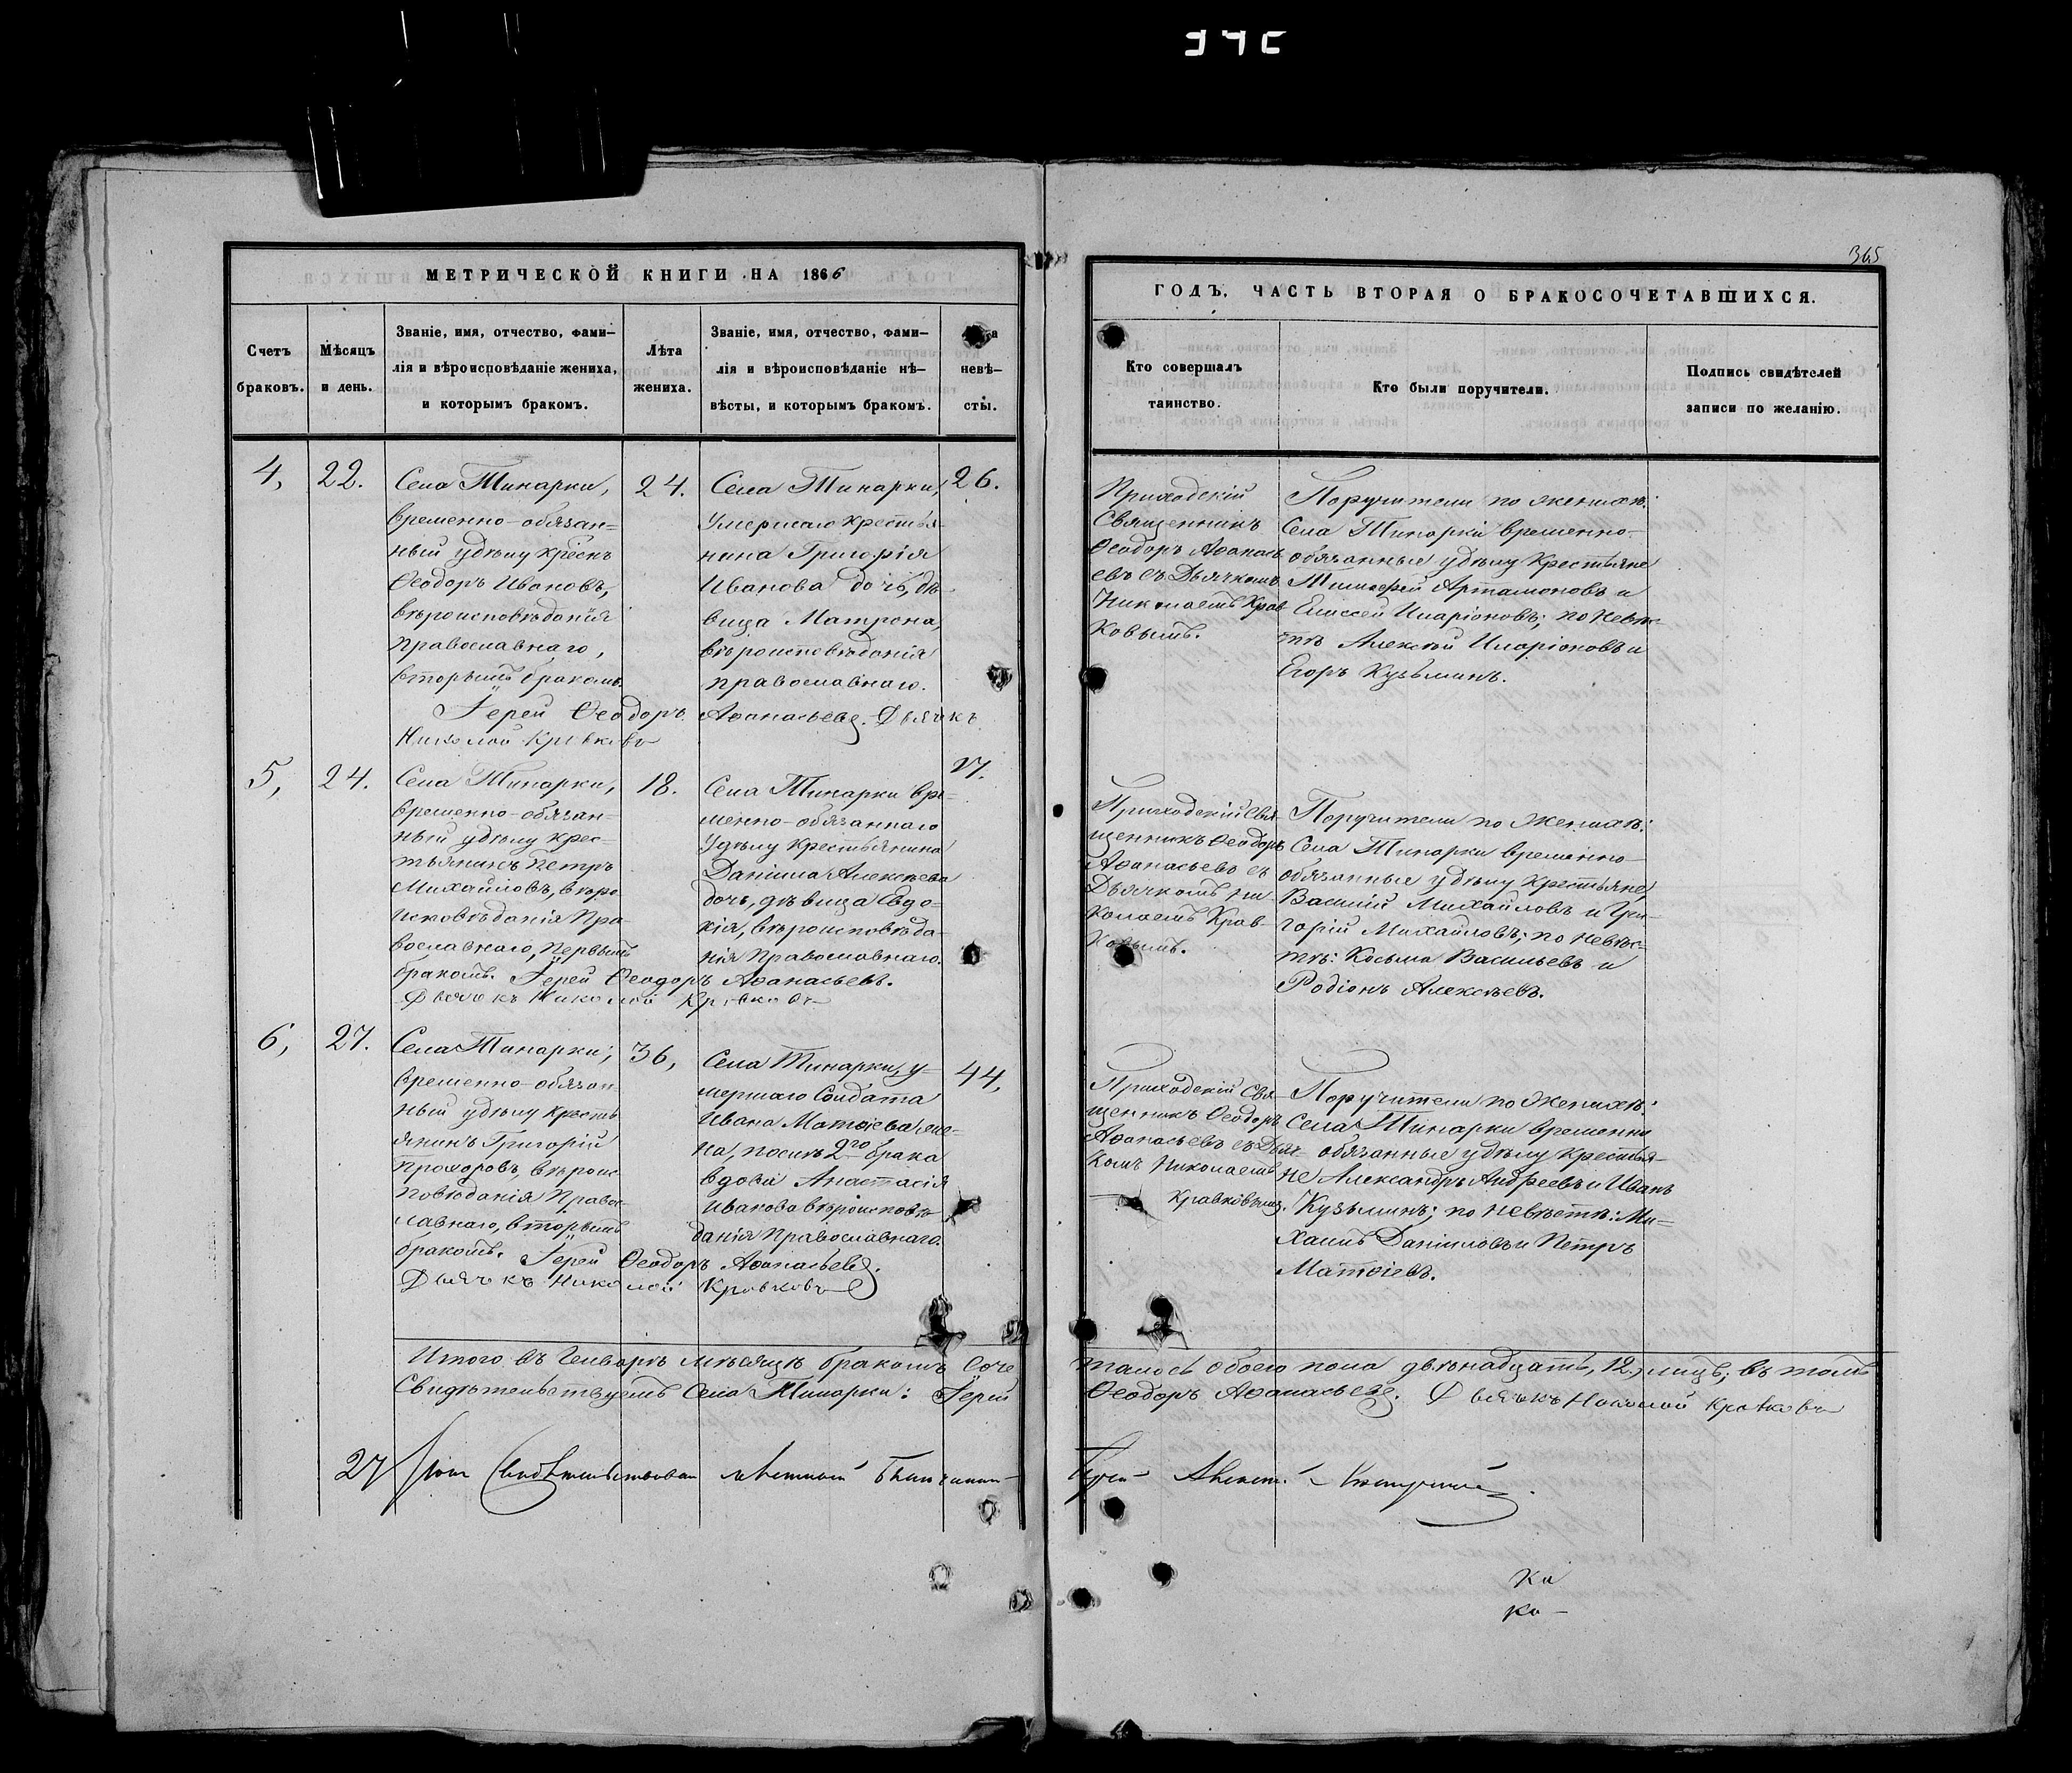 365
МЕТРИЧЕСКОЙ КНИГИ НА 1866
ГОДЪ, ЧАСТЬ ВТОРАЯ О БРАКОСОЧЕТАВШИХСЯ.
Счетъ
браковъ.
Мѣсяцъ
и день.
Званіе, имя, отчество, фами–
лія и вѣроисповѣданіе жениха,
и которымъ бракомъ.
Лѣта
жениха.
Званіе, имя, отчество, фами–
лія и вѣроисповѣданіе нѣ–
вѣсты, и которымъ бракомъ.
невѣ–
сты.
Кто совершалъ
таинство.
Кто были поручители.
Подпись свидѣтелей
записи по желанію.
4,
22.
Села Тинарки,
временно-обязан=
ный удѣлу крес̃нъ
Ѳеодоръ Ивановъ,
вѣроисповѣданія
православнаго,
вторымъ бракомъ.
24.
Села Тинарки,
умершаго крестья-
нина Григорія
Иванова дочь, дѣ-
вица Матрона,
вѣроисповѣданія
православнаго.
26.
Іерей Ѳеодоръ Аѳанасьевъ. Дьячекъ
Николай Кравковъ
Приходскій
Священникъ
Ѳеодоръ Аѳанась-
евъ съ Дьячкомъ
Николаемъ Крав-
ковымъ.
Поручители по женихѣ:
Села Тинарки временно-
обязанные удѣлу Крестьяне
Тимофей Артамоновъ и
Елисей Иларіоновъ; по Невѣс-
тѣ Алексѣй Иларіоновъ и
Егоръ Кузьминъ.
5,
24.
Села Тинарки,
временно-обязан=
ный удѣлу крес-
тьянинъ Петръ
Михайловъ, вѣро-
исповѣданія Пра-
вославнаго, первымъ
бракомъ. Іерей Ѳеодоръ Аѳанасьевъ.
Дьячекъ Николай Кравковъ
18.
Села Тинарки вре=
менно-обязаннаго
Удѣлу Крестьянина
Даніила Алексѣева
дочь, дѣвица Евдо-
кія, вѣроисповѣда-
нія Православнаго.
Приходскій Свя-
щенникъ Ѳеодоръ
Аѳанасьевъ съ
Дьячкомъ Ни-
колаемъ Крав-
ковымъ.
Поручители по Женихѣ:
Села Тинарки временно-
обязанные удѣлу Крестьяне
Василій Михайловъ и Гри-
горій Михайловъ; по невѣс-
тѣ: Косьма Васильевъ и
Родіонъ Алексѣевъ.
6,
27.
Села Тинарки,
временно-обязан-
ный удѣлу кресть-
янинъ Григорій
Прохоровъ, вѣроис-
повѣданія Правос-
лавнаго, вторымъ
бракомъ. Іерей Ѳеодоръ Аѳанасьевъ.
Дьячекъ Николай Кравковъ
36,
Села Тинарки, у=
мершаго Солдата
Ивана Матѳіева же=
на, послѣ 2го брака
вдова Анастасія
Иванова вѣроисповѣ-
данія Православнаго.
44,
Приходскій Свя-
щенникъ Ѳеодоръ
Аѳанасьевъ съ Дьяч-
комъ Николаемъ
Кравковымъ.
Поручители по Женихѣ:
Села Тинарки временно
обязанные удѣлу Крестья-
не Александръ Андреевъ и Иванъ
Кузьминъ; по невѣстѣ: Ми=
хаилъ Даніиловъ и Петръ
Матѳіевъ.
Итого въ Генварѣ мѣсяцѣ бракомъ соче
талось обоего пола двѣнадцать, 12, лицъ; въ томъ
Свидѣтельствуемъ Села Тинарки: Іерей
Ѳеодоръ Аѳанасьевъ. Дьячекъ Николай Кравковъ
27
Свидѣтельствовалъ мѣстный Благочинный
Іерей
Ка
ка–